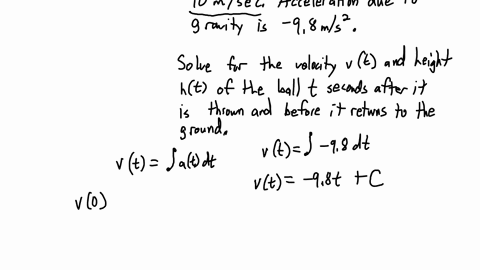 10 m/sec. Acceleration due to
gravity is -9.8 m/s².
Solve for the velocity v(t) and height
h(t) of the ball t seconds after it
is thrown and before it returns to the
ground.
v(t) = ∫a(t)dt
v(t) = ∫-9.8 dt
v(t) = -9.8t + C
v(0)